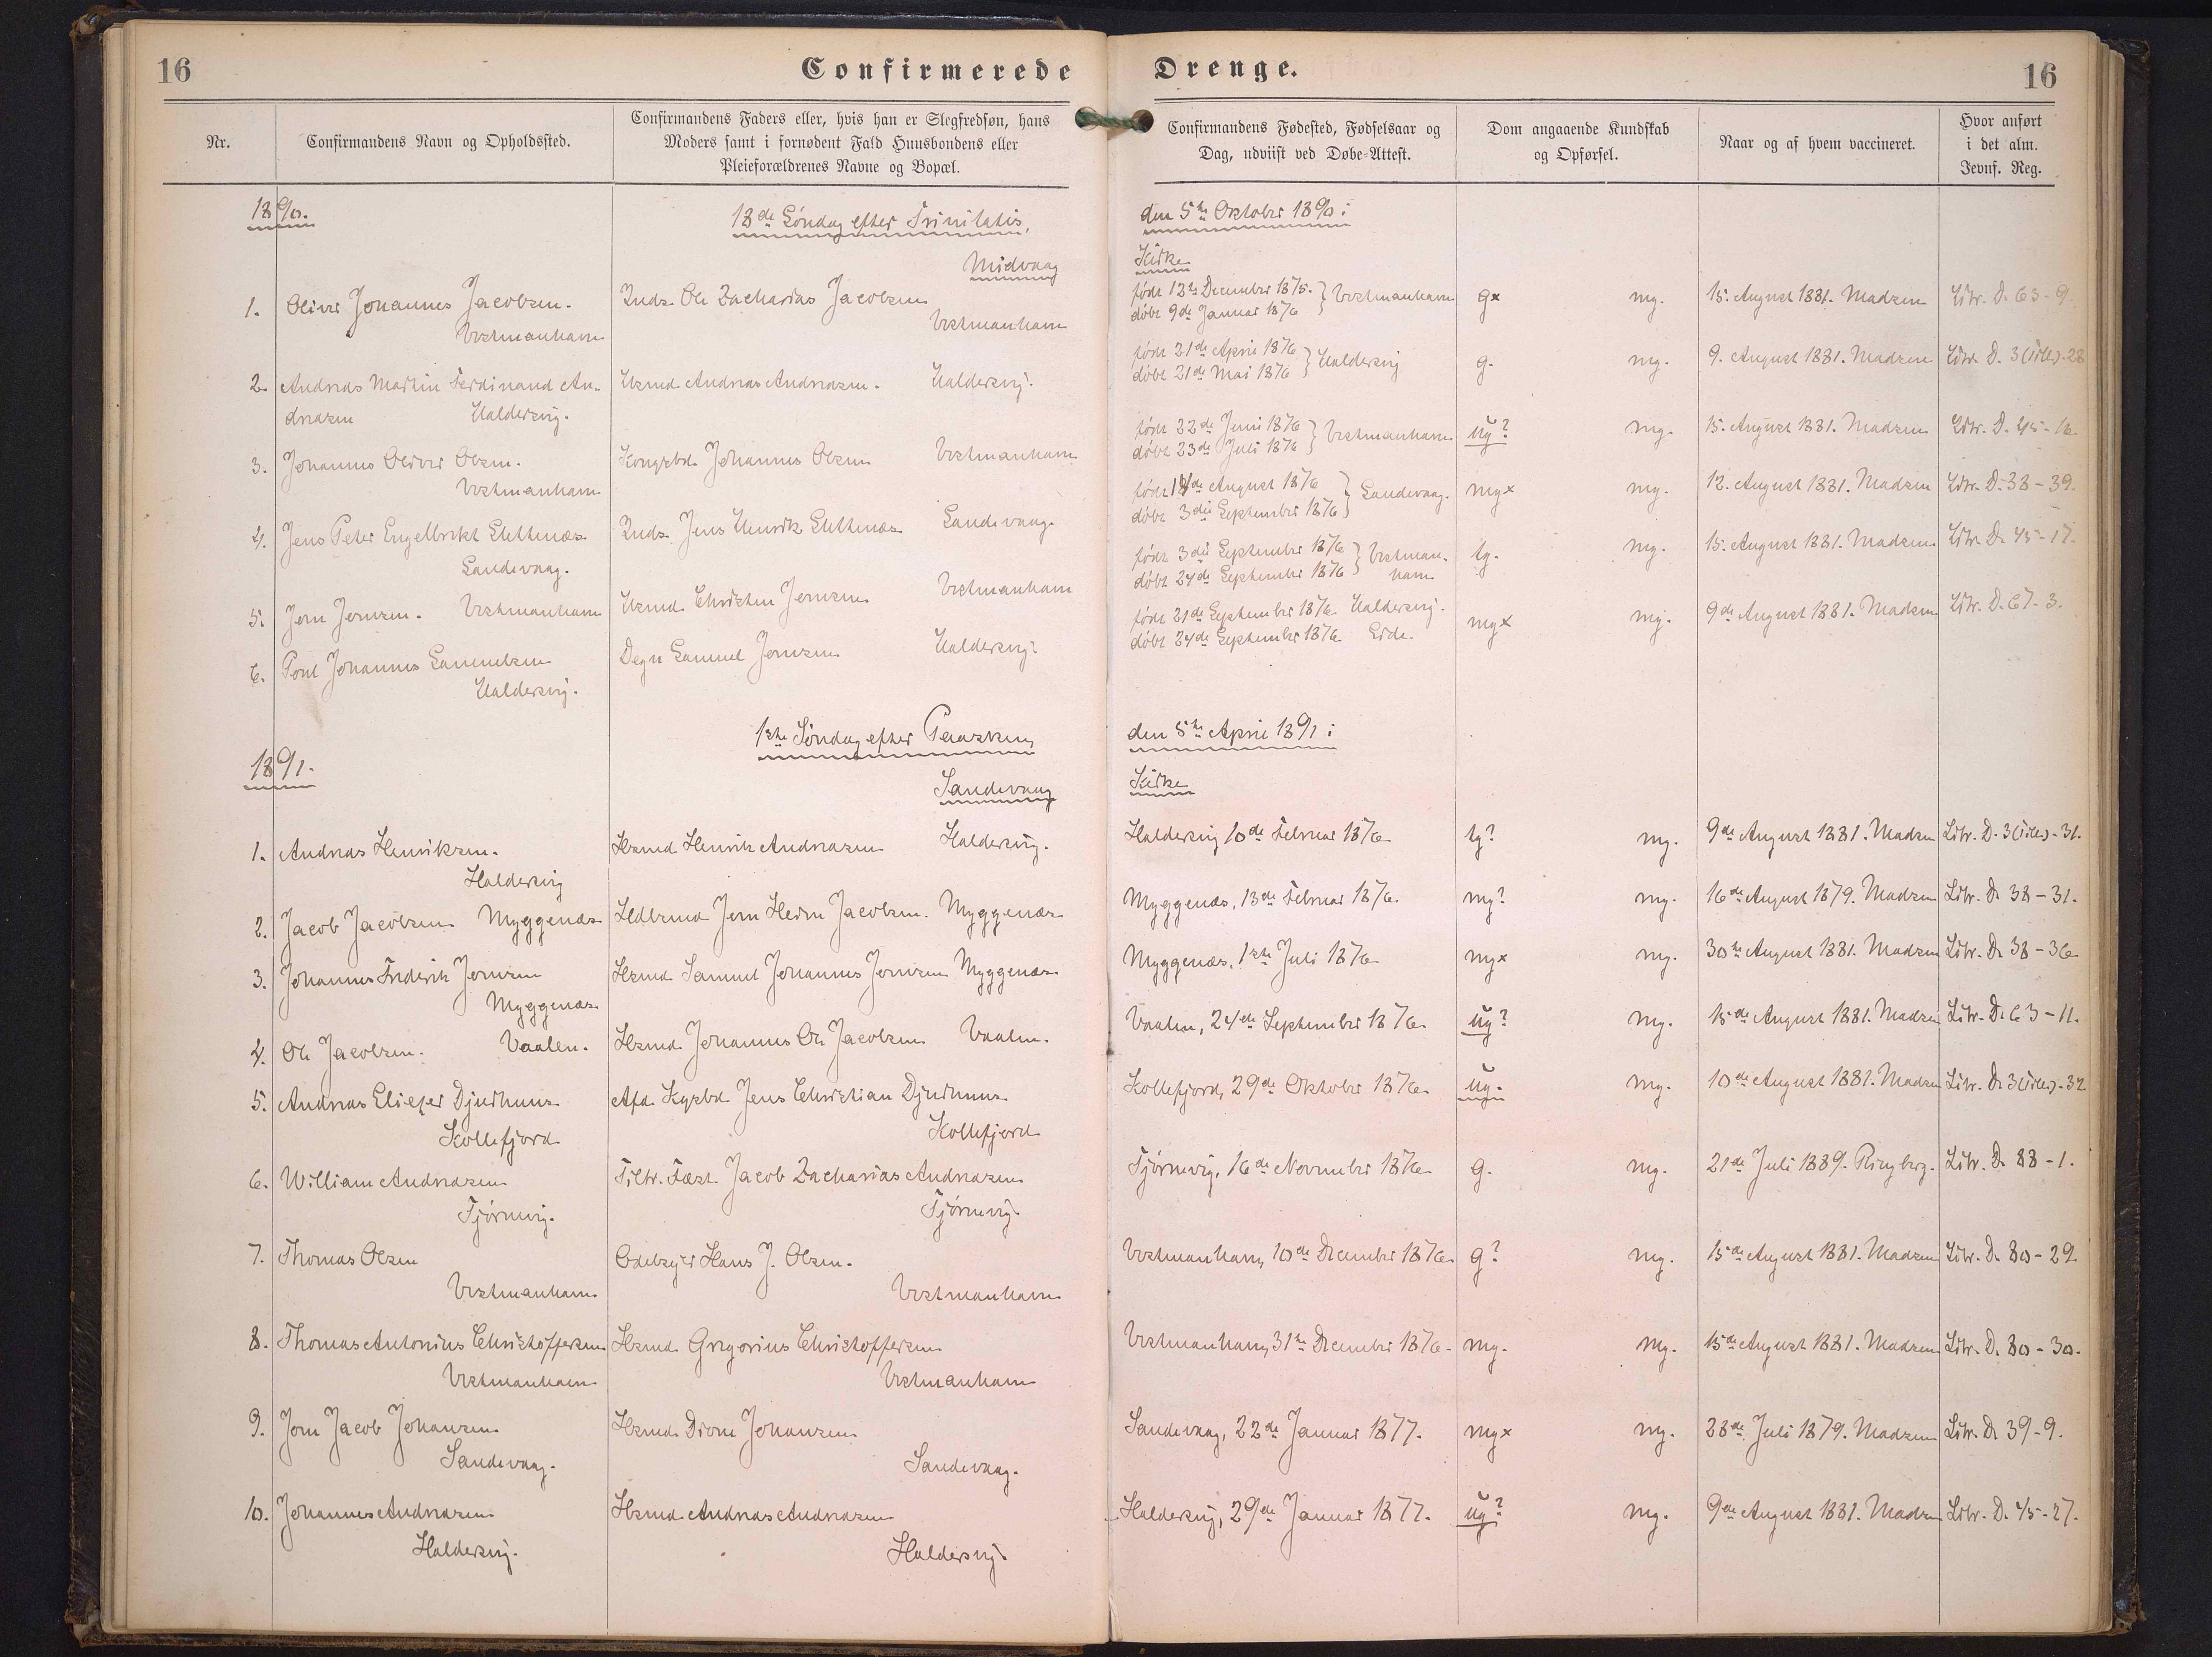 16
Confirmerede
Drenge.
16
Nr.
Confirmandens Navn og Opholdssted.
Confirmandens Faders eller, hvis han er Slegfredsøn, hans
Moders samt i fornødent Fald Huusbondens eller
Pleieforældrenes Navne og Bopæl.
Confirmandens Fødested, Fødselsaar og
Dag, udviist ved Døbe-Attest.
Dom angaaende Kundskab
og Opførsel.
Naar og af hvem vaccineret.
Hvor anført
i det alm.
Jevnf. Reg.
1890.
18de Søndag efter Trinitatis,
den 5te Oktober 1890 i
Midvaag
Kirke
1. Oliver Johannes Jacobsen.
Vestmanhavn
Inds. Ole Zacharias Jacobsen
Vestmanhavn
født 12te December 1875.
døbt 9de Januar 1876 } Vestmanhavn
g× mg. 15. August 1881. Madsen Litr. D. 63-9.
2. Andreas Martin Ferdinand An-
dreasen Haldersvig.
Hsmd. Andreas Andreasen. Haldersvig.
født 21de April 1876
døbt 21de Mai 1876 } Haldersvig
g. mg. 9. August 1881. Madsen Litr. D. 3(Eide)-28
3. Johannes Oliver Olsen.
Vestmanhavn
Kongsbd. Johannes Olsen Vestmanhavn
født 22de Juni 1876
døbt 23de Juli 1876 } Vestmanhavn
ug? mg. 15. August 1881. Madsen Litr. D. 45-16.
4. Jens Peter Engelbrekt Slettenæs
Sandevaag.
Inds. Jens Henrik Slettenæs Sandevaag
født 14de August 1876
døbt 3die September 1876 } Sandevaag.
mg× mg. 12. August 1881. Madsen Litr. D. 38-39.
5. Joen Joensen. Vestmanhavn
Hsmd. Christen Joensen Vestmanhavn
født 3die September 1876
døbt 24de September 1876 } Vestman-
havn
tg. mg. 15. August 1881. Madsen Litr. D. 45-17.
6. Poul Johannes Samuelsen
Haldersvig.
Degn Samuel Joensen Haldersvig.
født 21de September 1876. Haldersvig.
døbt 24de September 1876 Eide.
mg× mg. 9de August 1881. Madsen Litr. D. 67-3.
1891.
1ste Søndag efter Paasken,
den 5te April 1891 i
Sandevaag
Kirke
1. Andreas Henriksen.
Haldersvig
Hsmd. Henrik Andreasen Haldersvig.
Haldersvig 10de Februar 1876
tg? mg. 9de August 1881. Madsen Litr. D. 3(Eide)-31.
2. Jacob Jacobsen Myggenæs
Joen Jacobsen. Myggenæs
Myggenæs, 13de Februar 1876.
mg? mg. 16de August 1879. Madsen Litr. D. 38-31.
3. Johannes Frederik Joensen
Myggenæs
Hsmd. Samuel Johannes Joensen Myggenæs
Myggenæs, 1ste Juli 1876
mg× mg. 30te August 1881. Madsen Litr. D. 38-36
4. Ole Jacobsen. Vaalen.
Hsmd. Johannes Ole Jacobsen Vaalen.
Vaalen, 24de September 1876.
ug? mg. 15de August 1881. Madsen Litr. D. 63-11.
5. Andreas Elieser Djurhuus
Kollefjord
Afd. Kgsbd. Jens Christian Djurhuus
Kollefjord
Kollefjord, 29de Oktober 1876.
ug. mg. 10de August 1881. Madsen Litr. D. 3(Eide)-32
6. William Andreasen
Tjørnevig.
Fæst. Jacob Zacharias Andreasen
Tjørnevig.
Tjørnevig, 16de November 1876
g. mg. 21de Juli 1889. Ringberg. Litr. D. 88-1.
7. Thomas Olsen
Vestmanhavn
Odelsejer Hans J. Olsen.
Vestmanhavn
Vestmanhavn, 10de December 1876.
g? mg. 15de August 1881. Madsen Litr. D. 80-29.
8. Thomas Antonius Christoffersen
Vestmanhavn
Hsmd. Gregorius Christoffersen
Vestmanhavn
Vestmanhavn, 31te December 1876.
mg. mg. 15de August 1881. Madsen Litr. D. 80-30.
9. Joen Jacob Johansen
Sandevaag.
Hsmd. Johansen
Sandevaag.
Sandevaag, 22de Januar 1877.
mg× mg. 28de Juli 1879. Madsen Litr. D. 39-9.
10. Johannes Andreasen
Haldersvig.
Hsmd. Andreas Andreasen
Haldersvig.
Haldersvig, 29de Januar 1877.
ug? mg. 9de August 1881. Madsen Litr. D. 45-27.